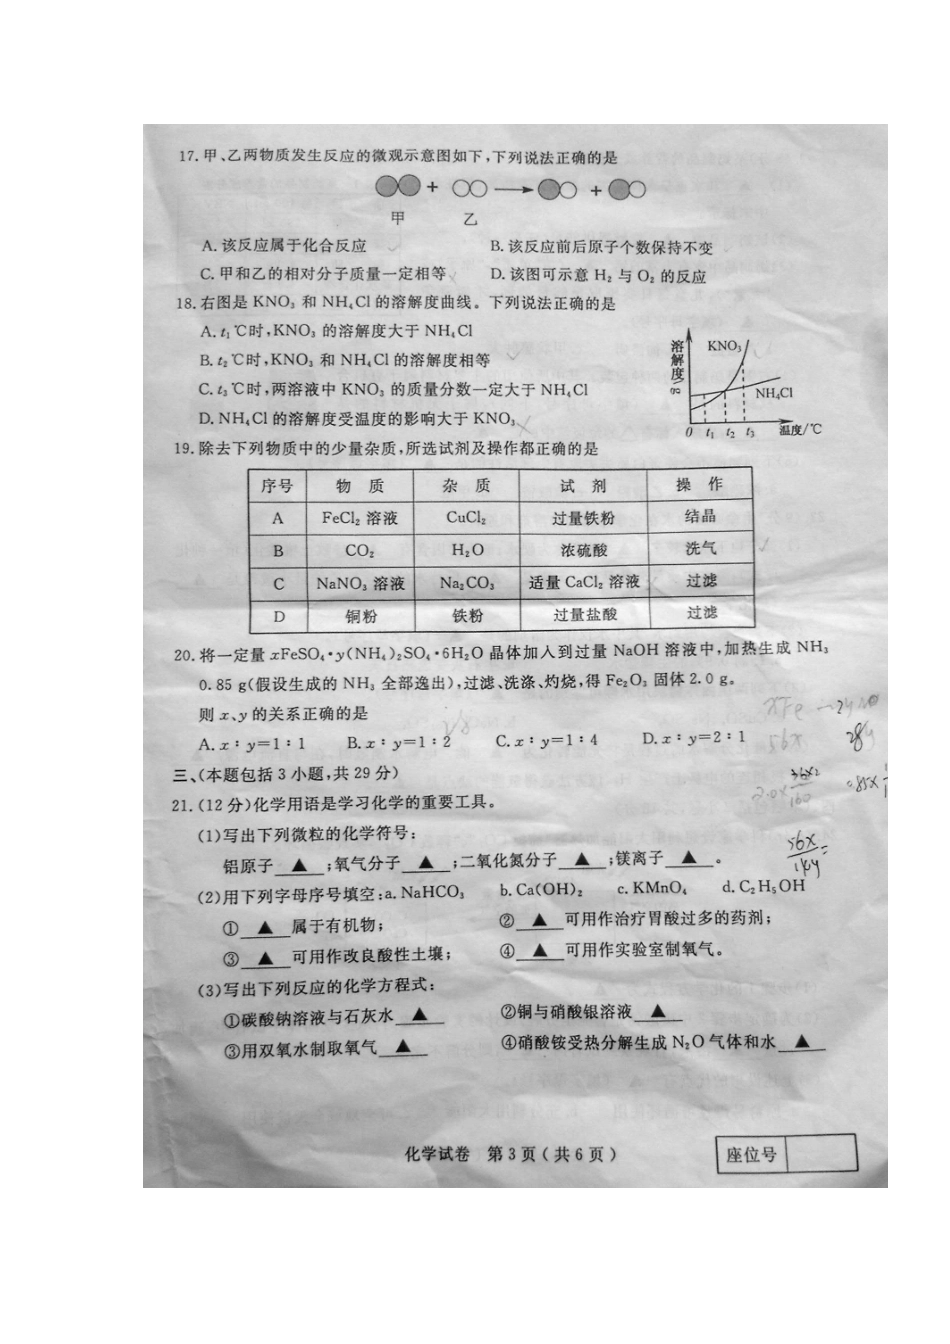 17.甲、乙两物质发生反应的微观示意图如下,下列说法正确的是
+ → +
甲 乙
A.该反应属于化合反应 B.该反应前后原子个数保持不变
C.甲和乙的相对分子质量一定相等 D.该图可示意 H₂ 与 O₂ 的反应
18.右图是 KNO₃ 和 NH₄Cl 的溶解度曲线。下列说法正确的是
A.t₁℃时,KNO₃ 的溶解度大于 NH₄Cl
B.t₂℃时,KNO₃ 和 NH₄Cl 的溶解度相等
C.t₃℃时,两溶液中 KNO₃ 的质量分数一定大于 NH₄Cl
D.NH₄Cl 的溶解度受温度的影响大于 KNO₃
溶解度/g
KNO₃
NH₄Cl
0 t₁ t₂ t₃ 温度/℃
19.除去下列物质中的少量杂质,所选试剂及操作都正确的是
序号 物 质 杂 质 试 剂 操 作
A FeCl₂ 溶液 CuCl₂ 过量铁粉 结晶
B CO₂ H₂O 浓硫酸 洗气
C NaNO₃ 溶液 Na₂CO₃ 适量 CaCl₂ 溶液 过滤
D 铜粉 铁粉 过量盐酸 过滤
20.将一定量 xFeSO₄·y(NH₄)₂SO₄·6H₂O 晶体加入到过量 NaOH 溶液中,加热生成 NH₃
0.85 g(假设生成的 NH₃ 全部逸出),过滤、洗涤、灼烧,得 Fe₂O₃ 固体 2.0 g。
则 x、y 的关系正确的是
A.x∶y=1∶1 B.x∶y=1∶2 C.x∶y=1∶4 D.x∶y=2∶1
56x
三、(本题包括 3 小题,共 29 分)
21.(12 分)化学用语是学习化学的重要工具。
(1)写出下列微粒的化学符号:
铝原子 ▲ ;氧气分子 ▲ ;二氧化氮分子 ▲ ;镁离子 ▲ 。
(2)用下列字母序号填空:a.NaHCO₃ b.Ca(OH)₂ c.KMnO₄ d.C₂H₅OH
① ▲ 属于有机物; ② ▲ 可用作治疗胃酸过多的药剂;
③ ▲ 可用作改良酸性土壤; ④ ▲ 可用作实验室制氧气。
(3)写出下列反应的化学方程式:
①碳酸钠溶液与石灰水 ▲ ②铜与硝酸银溶液 ▲
③用双氧水制取氧气 ▲ ④硝酸铵受热分解生成 N₂O 气体和水 ▲
化学试卷 第 3 页(共 6 页)
座位号